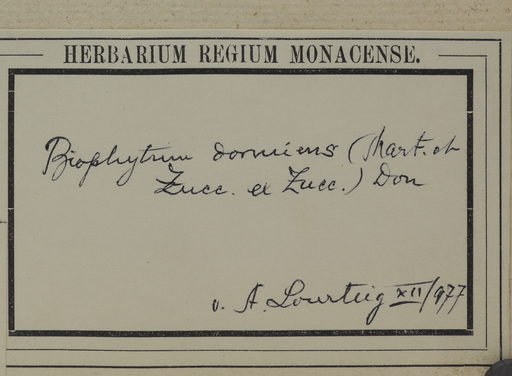 HERBARIUM REGIUM MONACENSE.
Biophytum dormiens (Mart. et
Zucc. ex Zucc.) Don
v. A. Lourteig XII/977